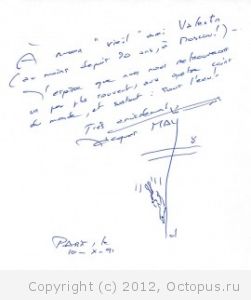 À mon "vieil" ami Valentin
(au moins depuis 20 ans, à Moscou!)...
J'espère que nous nous retrouverons
un peu plus souvent, aux quatre coins
du monde, et surtout: sous l'eau!
Très amicalement
Jacques MAY
PARIS, le
10-X-91
Copyright (c) 2012, Octopus.ru